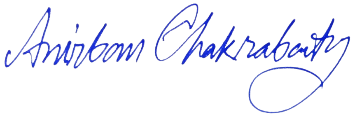 Anirban Chakraborty